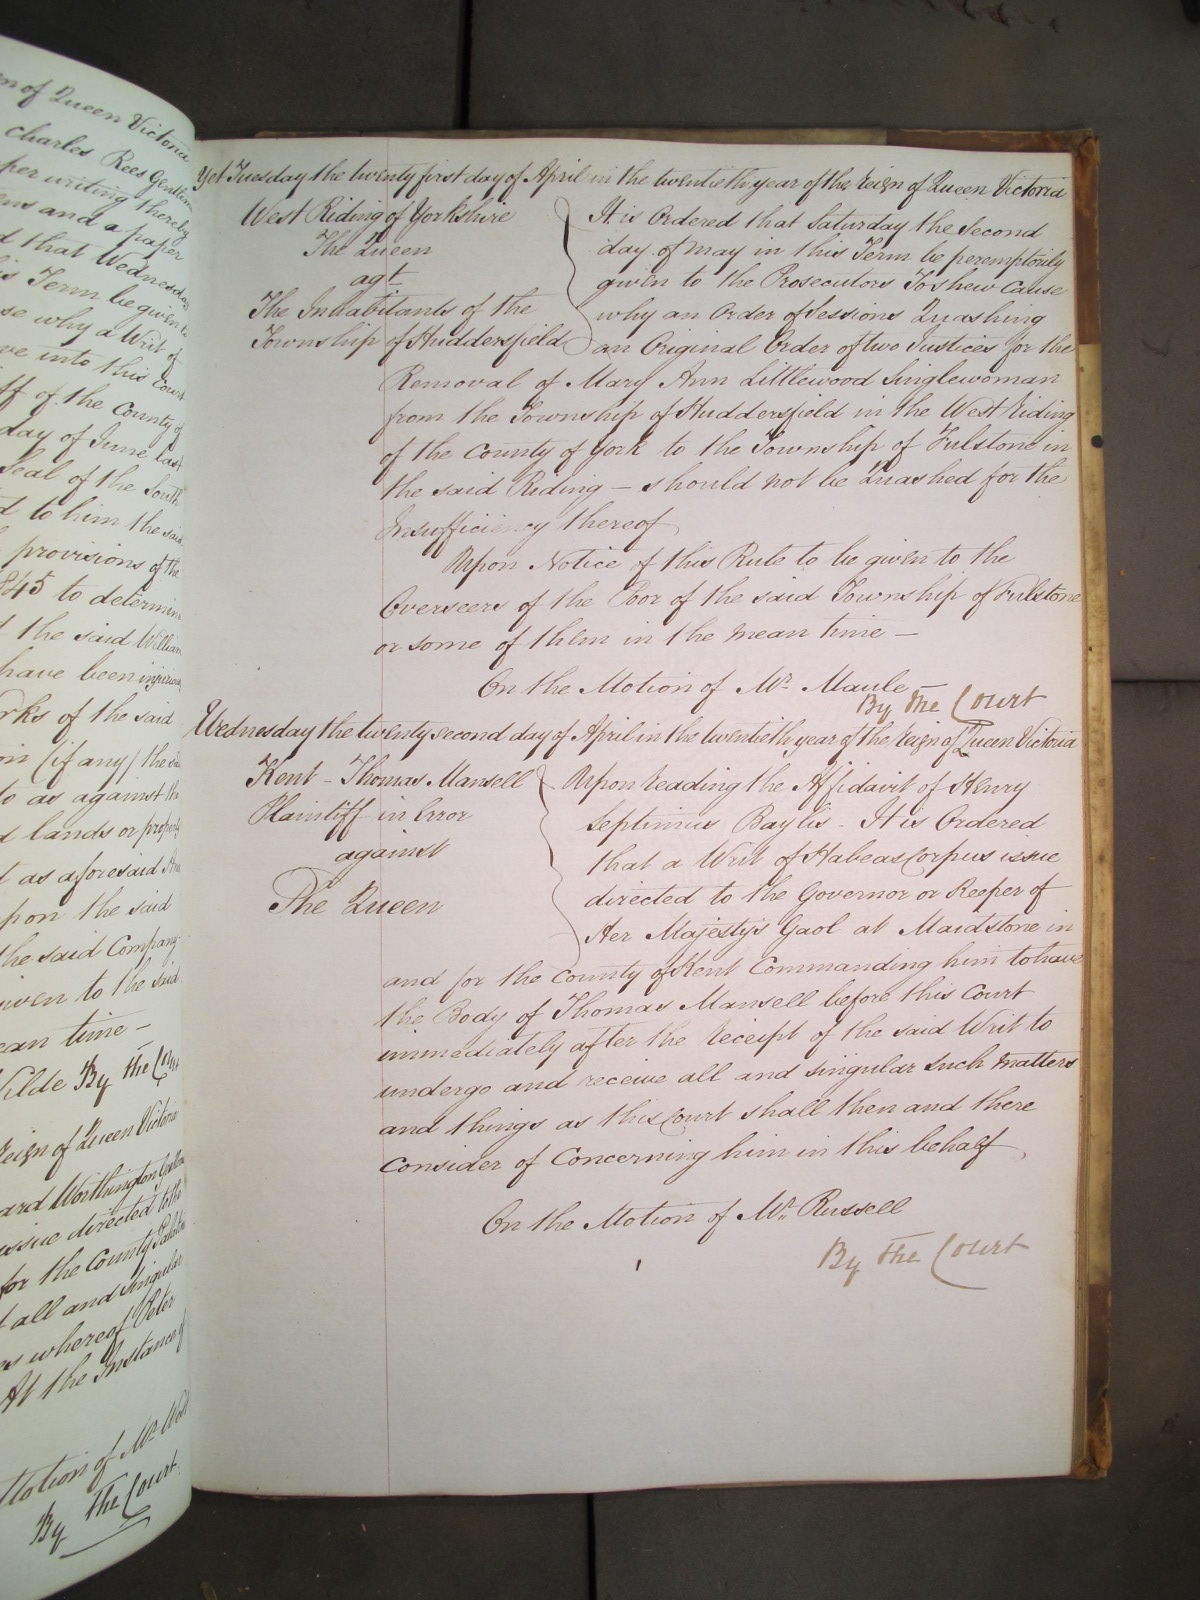 en of Queen Victoria
Charles Rees Gentlem
per writing thereby
ens and a paper
d that Wednesday
is Term be given to
se why a Writ of
ve into this Court
ff of the County of
day of June last
Seal of the South
d to him the said
provisions of the
845 to determine
d the said William
have been injurious
rks of the said
on (if any) the said
to as against the
d lands or property
t as aforesaid
pon the said
the said Company
iven to the said
ean time –
Wilde By the Court
Reign of Queen Victoria
ard Worthington Gentlem
issue directed to the
for the County Palatin
t all and singular
es whereof Peter
At the Instance of
Motion of Mr.
By the Court.
Yet Tuesday the twenty first day of April in the twentieth year of the Reign of Queen Victoria
West Riding of Yorkshire
The Queen
agt.
The Inhabitants of the
Township of Huddersfield
It is Ordered that Saturday the Second
day of May in this Term be peremptorily
given to the Prosecutors To shew Cause
why an Order of Sessions Quashing
an Original Order of two Justices for the
Removal of Mary Ann Littlewood Singlewoman
from the Township of Huddersfield in the West Riding
of the County of York to the Township of Fulstone in
the said Riding – should not be Quashed for the
Insufficiency thereof
Upon Notice of this Rule to be given to the
Overseers of the Poor of the said Township of Fulstone
or some of them in the mean time –
On the Motion of Mr. Maule
By the Court
Wednesday the twenty second day of April in the twentieth year of the Reign of Queen Victoria
Kent – Thomas Mansell
Plaintiff in Error
against
The Queen
Upon reading the Affidavit of Henry
Septimus Baylis – It is Ordered
that a Writ of Habeas Corpus issue
directed to the Governor or Keeper of
Her Majesty's Gaol at Maidstone in
and for the County of Kent Commanding him to have
the Body of Thomas Mansell before this Court
immediately after the Receipt of the said Writ to
undergo and receive all and singular such matters
and things as this Court shall then and there
Consider of Concerning him in this behalf
On the Motion of Mr. Russell
By the Court